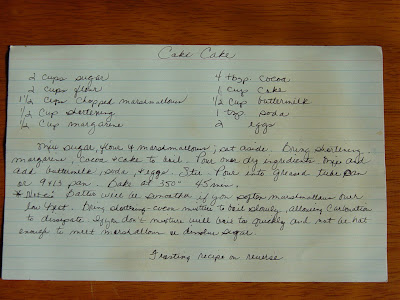 Cake Cake
2 cups sugar
2 cups flour
1½ cups chopped marshmallows
½ cup shortening
½ cup margarine
4 tbsp. cocoa
1 cup Cake
½ cup buttermilk
1 tsp soda
2 eggs
Mix sugar, flour & marshmallows; set aside. Bring shortening,
margarine, cocoa & cake to boil. Pour over dry ingredients. Mix and
add buttermilk, soda, & eggs. Stir. Pour into greased tube pan
or 9x13 pan. Bake at 350° 45 min.
* Note: Batter will be smoother if you soften marshmallows over
low heat. Bring shortening-cocoa mixture to boil slowly, allowing carbonation
to dissipate. If you don't mixture will boil too quickly and not be hot
enough to melt marshmallow or dissolve sugar.
Frosting recipe on reverse